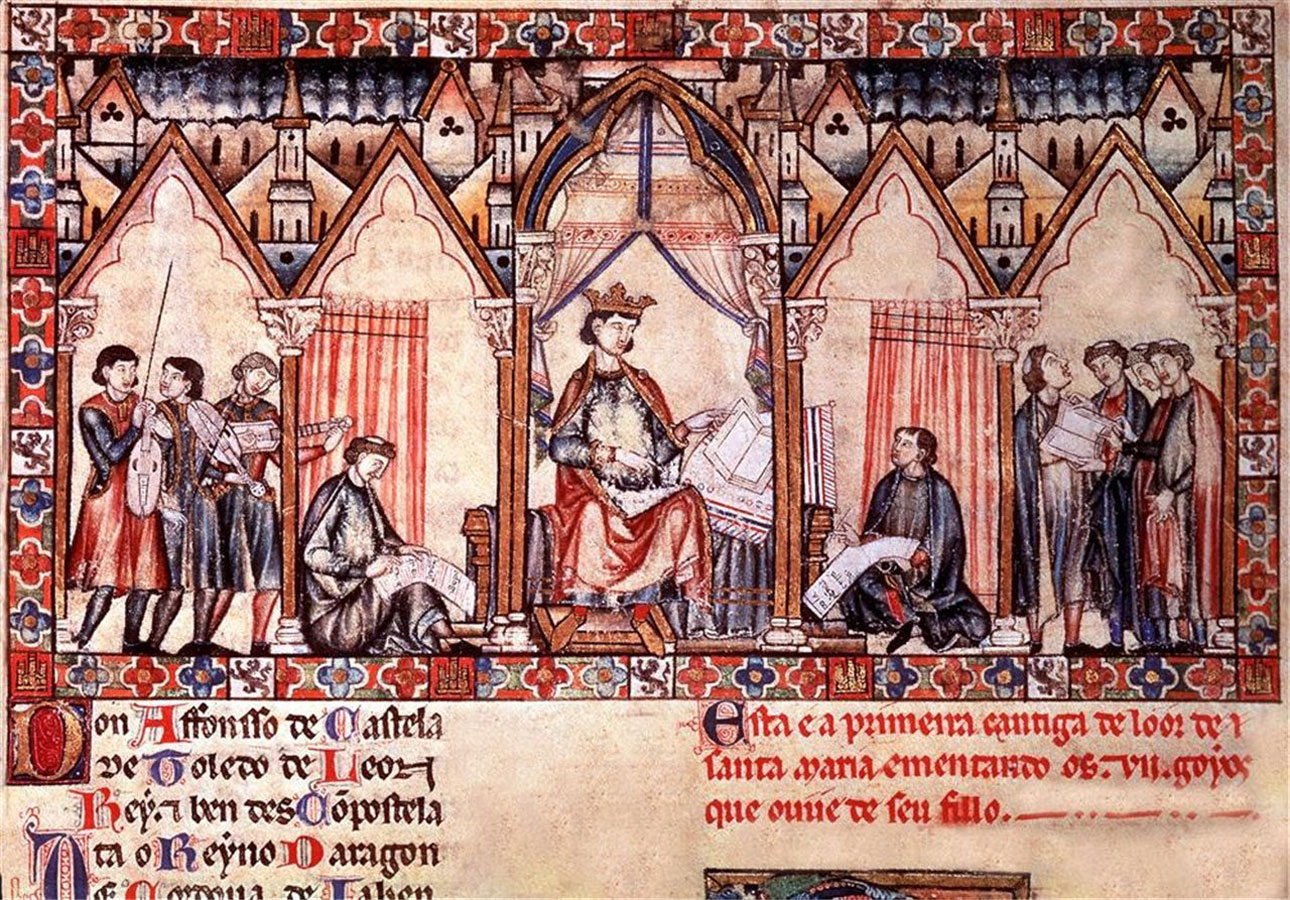 Don Affonsso de Castela
de Toledo de Leon
Rey ⁊ ben des Cõpostela
Ta o Reyno Daragon
De Cordova de Iahen
Esta e a primeira cantiga de loor de
santa maria ementando os .vii. goyos
que ouue de seu fillo.